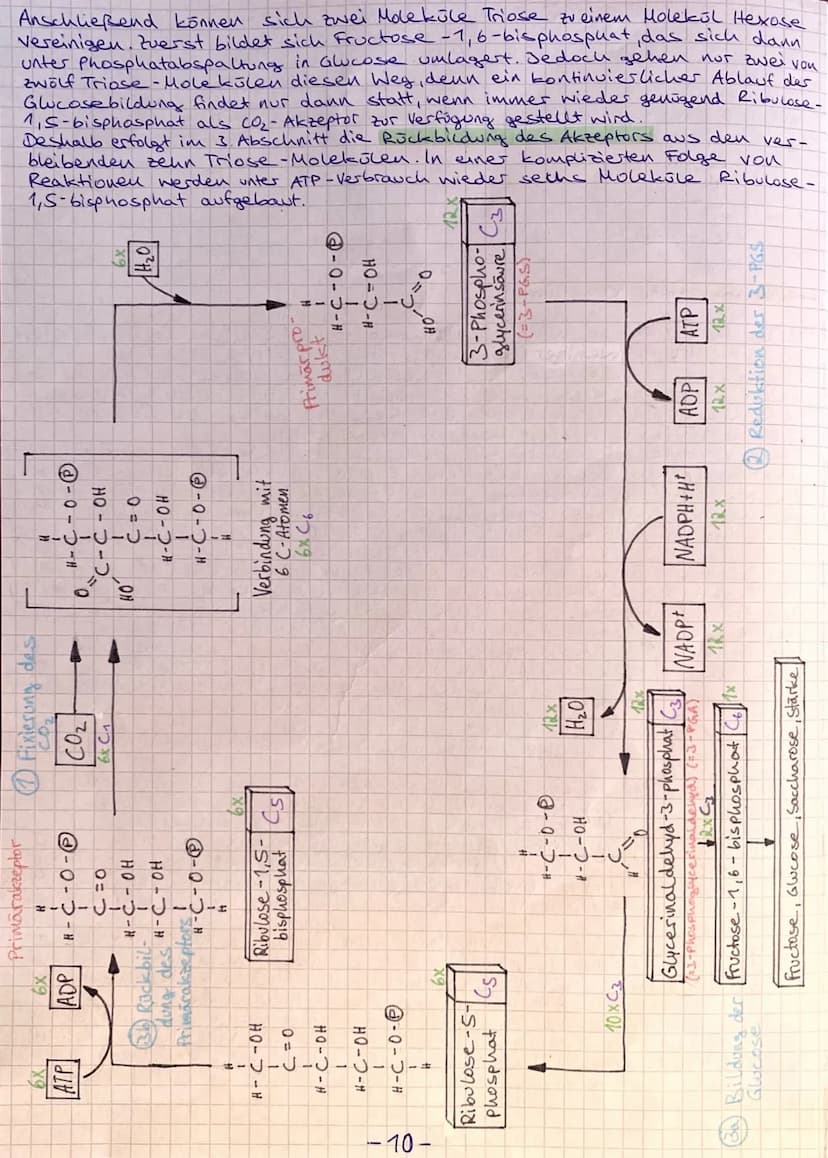 Anschließend können sich zwei Moleküle Triose zu einem Molekül Hexose
vereinigen. Zuerst bildet sich Fructose-1,6-bisphosphat, das sich dann
unter Phosphatabspaltung in Glucose umlagert. Jedoch gehen nur zwei von
zwölf Triose-Molekülen diesen Weg, denn ein kontinuierlicher Ablauf der
Glucosebildung findet nur dann statt, wenn immer wieder genügend Ribulose-
1,5-bisphosphat als CO₂-Akzeptor zur Verfügung gestellt wird.
Deshalb erfolgt im 3. Abschnitt die Rückbildung des Akzeptors aus den ver-
bleibenden zehn Triose-Molekülen. In einer komplizierten Folge von
Reaktionen werden unter ATP-Verbrauch wieder sechs Moleküle Ribulose-
1,5-bisphosphat aufgebaut.
① Fixierung des
CO₂
Primärakzeptor
H
H-C-O-Ⓟ
C=O
H-C-OH
H-C-OH
H-C-O-Ⓟ
H
6x
Ribulose-1,5-
bisphosphat C5
CO₂
6x C1
H
H-C-O-Ⓟ
O=C-C-OH
HO
C=O
H-C-OH
H-C-O-Ⓟ
H
Verbindung mit
6 C-Atomen
6x C6
6x
H₂O
Primärpro-
dukt
H
H-C-O-Ⓟ
H-C=OH
C=O
HO
12x
3-Phospho-
glycerinsäure C3
(=3-PGS)
② Reduktion der 3-PGS
ATP
12x
ADP
12x
NADPH+H⁺
12x
NADP⁺
12x
12x
H₂O
H
H-C-O-Ⓟ
H-C-OH
C=O
H
12x
Glycerinaldehyd-3-phosphat C3
(=3-Phosphoglycerinaldehyd) (=3-PGA)
2x C3
1x
Fructose-1,6-bisphosphat C6
Fructose, Glucose, Saccharose, Stärke
③a Bildung der
Glucose
10x C3
6x
Ribulose-5-
phosphat C5
H
H-C-OH
C=O
H-C-OH
H-C-OH
H-C-O-Ⓟ
H
6x
ATP
6x
ADP
③b Rückbil-
dung des
Primärakzeptors
-10-